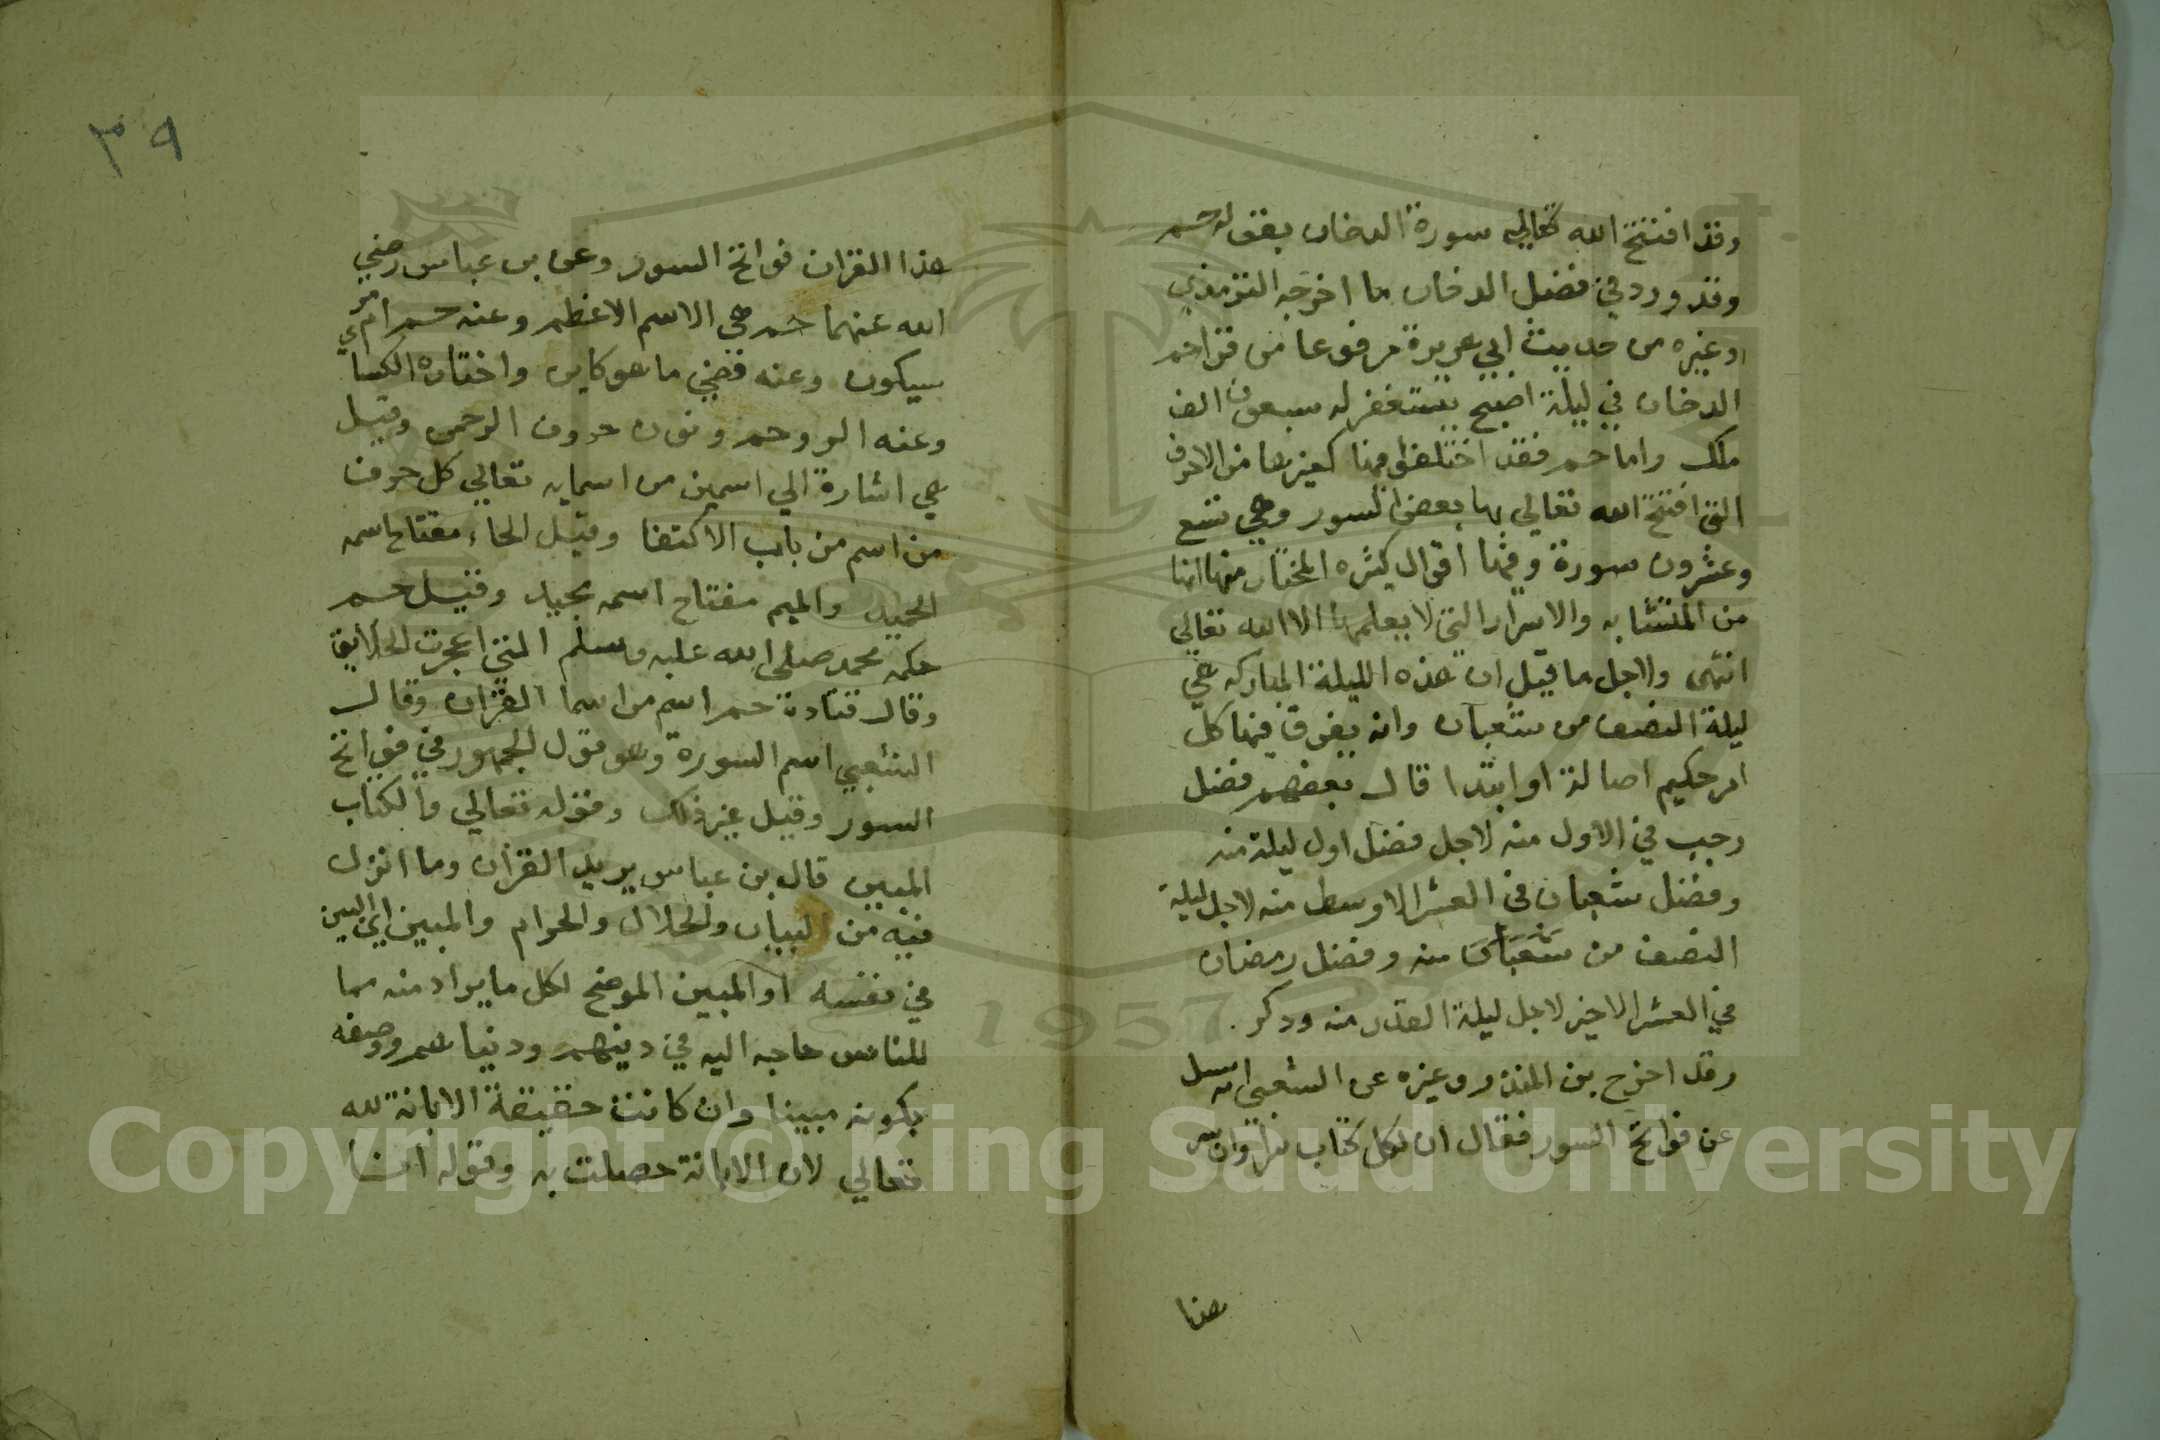 وقد افتتح الله تعالي سورة الدخان بقوله حم
وقد ورد في فضل الدخان ما اخرجه الترمذي
وغيره من حديث ابي هريرة مرفوعا من قرا حم
الدخان في ليلة اصبح يستغفر له سبعون الف
ملك واما حم فقد اختلفوا فيها كغيرها من الاحرف
التي افتتح الله تعالي بها بعض السور وهي تسع
وعشرون سورة وفيها اقوال كثيره المختار منها انها
من المتشابه والاسرار التي لا يعلمها الا الله تعالي
انتهى ولاجل ما قيل ان هذه الليلة المباركه هي
ليلة النصف من شعبان وانه يفرق فيها كل
امر حكيم اصالة او ابتدا قال بعضهم فضل
رجب في الاول منه لاجل فضل اول ليلة منه
وفضل شعبان في العشر الاوسط منه لاجل ليلة
النصف من شعبان منه وفضل رمضان
في العشر الاخير لاجل ليلة القدر منه وذكر
وقد اخرج بن المنذر وغيره عن الشعبي انه سيل
عن فواتح السور فقال ان لكل كتاب سرا وان سر
هذا
٣٩
هذا القران فواتح السور وعن بن عباس رضي
الله عنهما حم هي الاسم الاعظم وعنه حم امر
سيكون وعنه قضي ما هو كاين واختاره الكسا
ي
وعنه الر وحم ونون حروف الرحمن وقيل
هي اشارة الي اسمين من اسمايه تعالي كل حرف
من اسم من باب الاكتفا وقيل الحاء مفتاح اسمه
الحميد والميم مفتاح اسمه مجيد وقيل حم
حكمه محمد صلى الله عليه وسلم التي اعجزت الخلايق
وقال قتادة حم اسم من اسما القران وقال
الشعبي اسم السورة وهو قول الجمهور في فواتح
السور وقيل غير ذلك وقوله تعالي والكتاب
المبين قال بن عباس يريد القران وما انزل
فيه من البيان والحلال والحرام والمبين اي البين
في نفسه او المبين الموضح لكل ما يراد منه مما
للناس حاجه اليه في دينهم ودنياهم ووصفه
بكونه مبينا وان كانت حقيقة الابانة لله
تعالي لان الابانة حصلت به وقوله انا
1957
Copyright © King Saud University